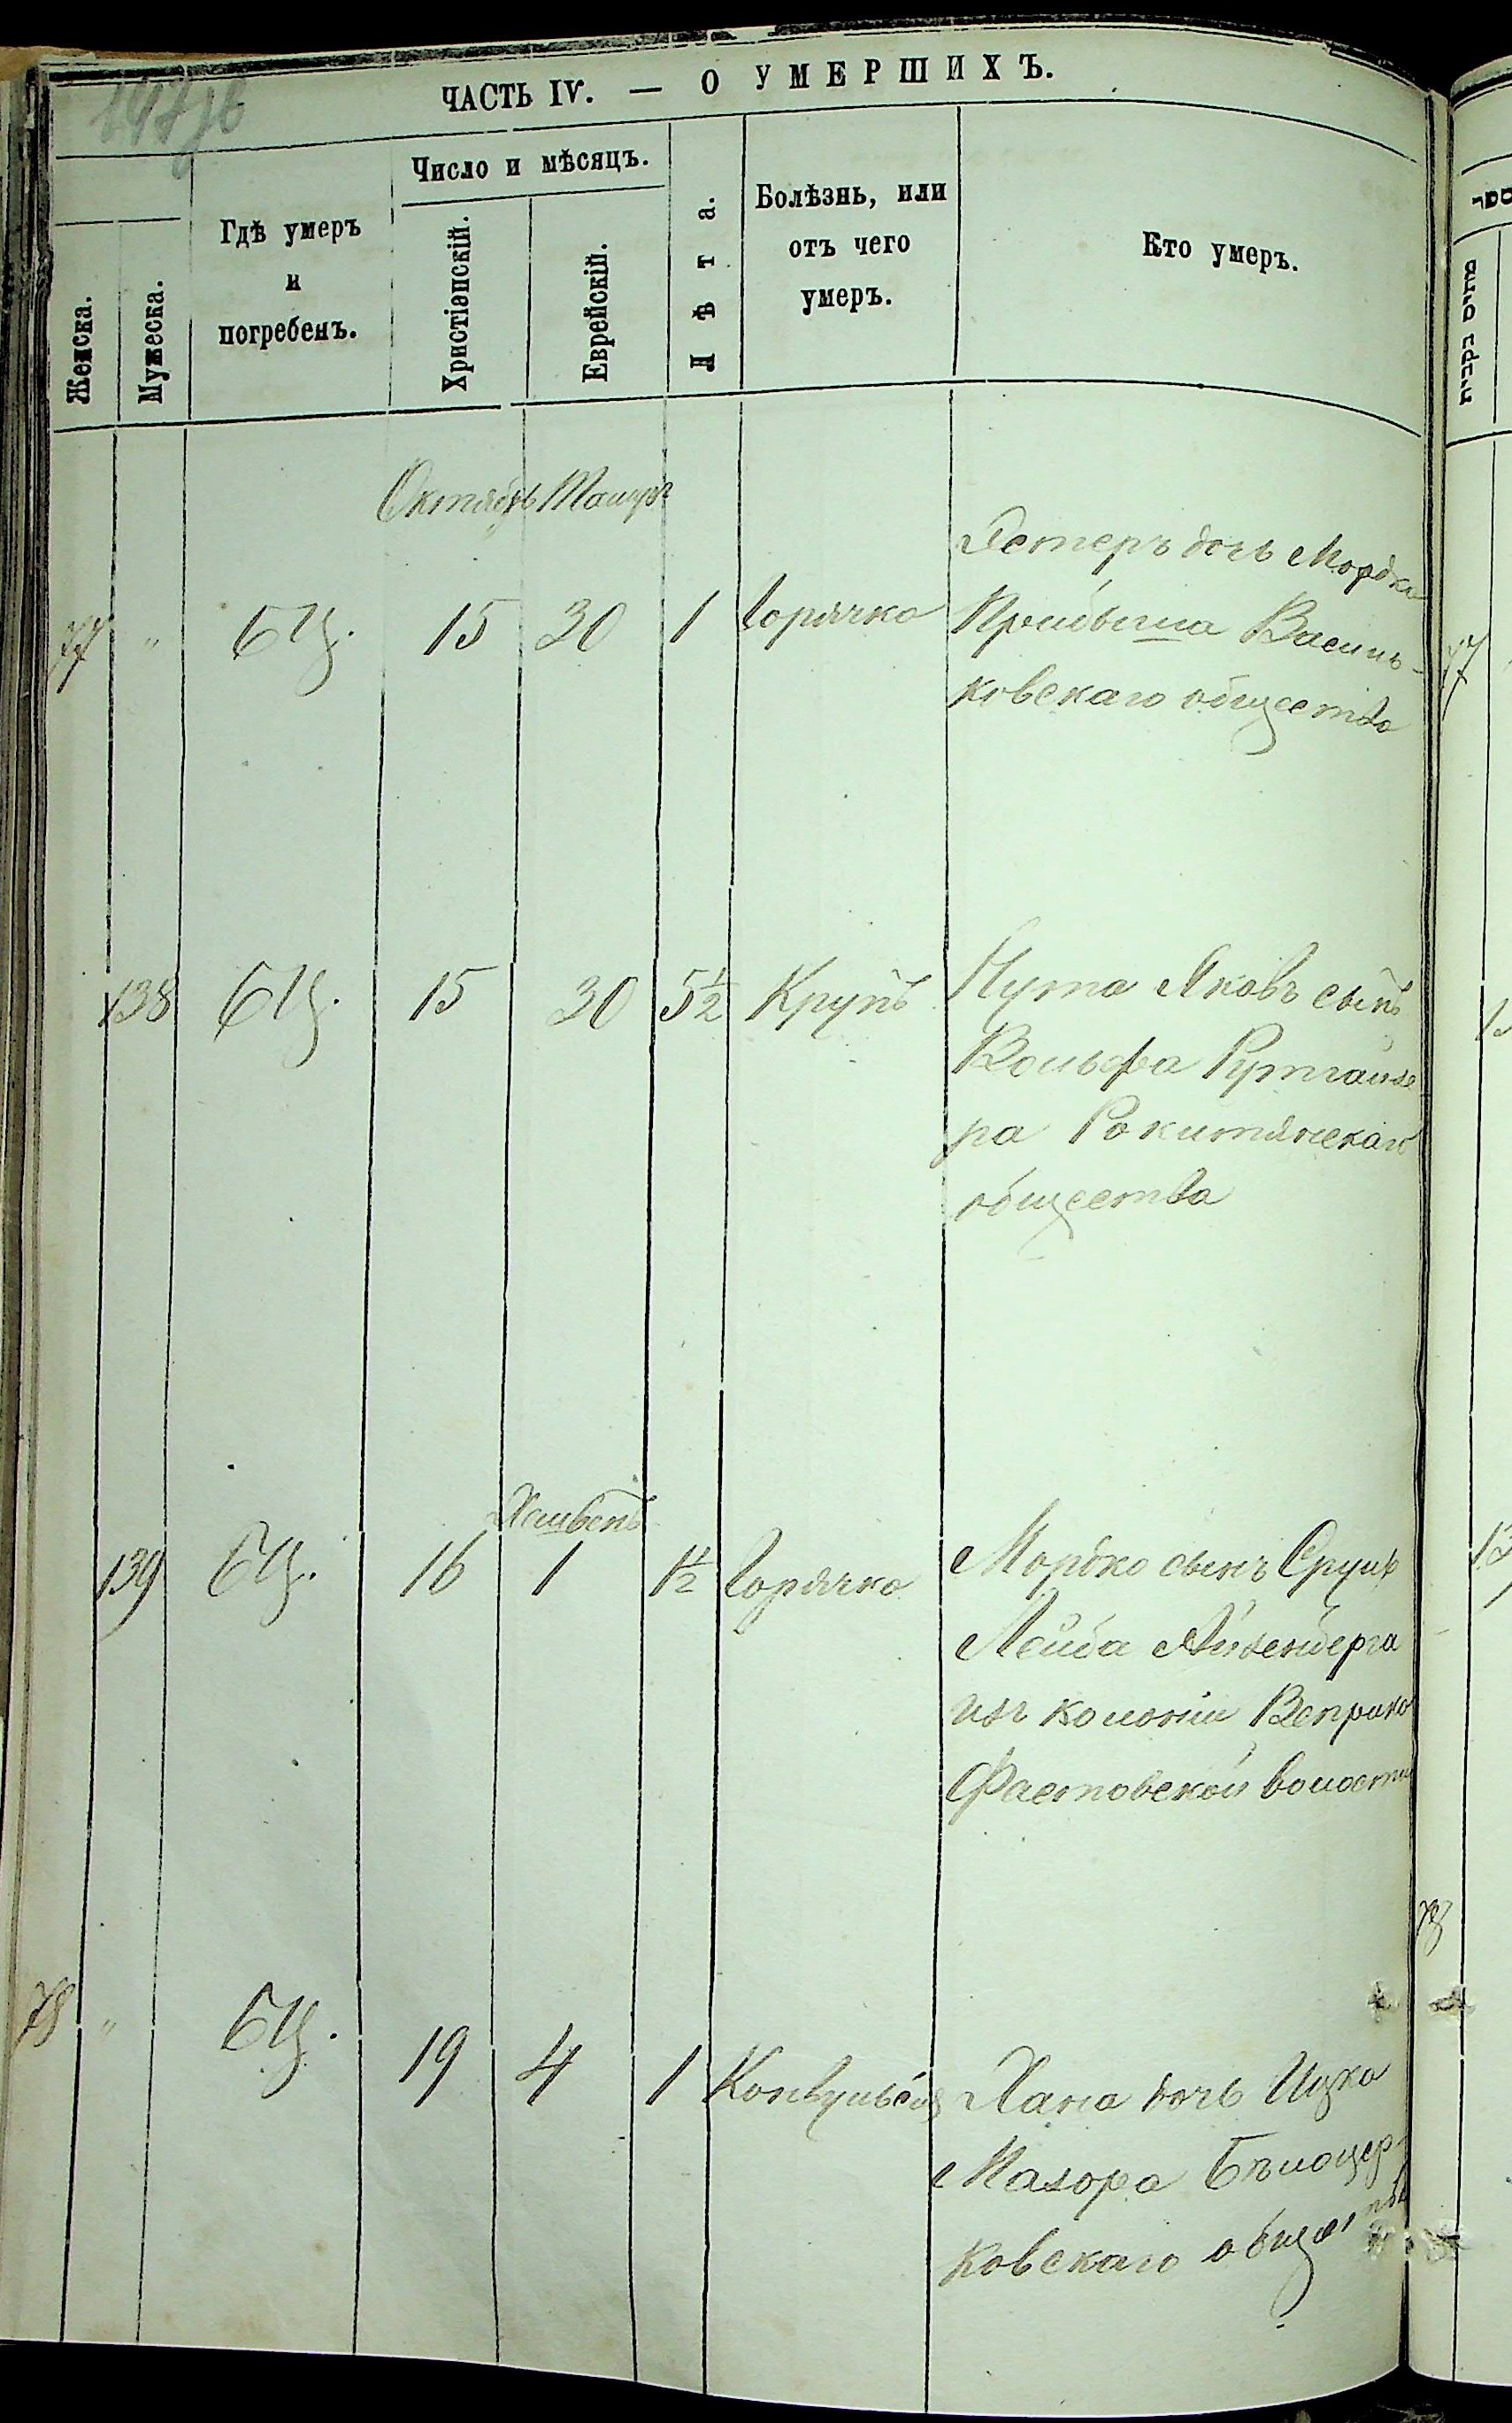 ЧАСТЬ IV. — О УМЕРШИХЪ.
Женска.
Мужеска.
Гдѣ умеръ
и
погребенъ.
Число и мѣсяцъ.
Христіанскій.
Еврейскій.
Лѣта.
Болѣзнь, или
отъ чего
умеръ.
Кто умеръ.
Октябрь
77 " БЦ. 15 30 1 Горячка
Эстеръ дочь Мордка
Василь-
ковскаго общества
138 БЦ. 15 30 5½ Крупъ
Нута Яковъ сынъ
Вольфа Рутгайзе
ра Рокитянскаго
общества
Хешвенъ
139 БЦ. 16 1 1½ Горячка
Мордко сынъ Сруль
Лейба Айзенберга
изъ колоніи Веприка
Фастовской волости
78 " БЦ. 19 4 1 Конвульсія
Хана дочь Ицка
Мазора Бѣлоцер-
ковскаго общества